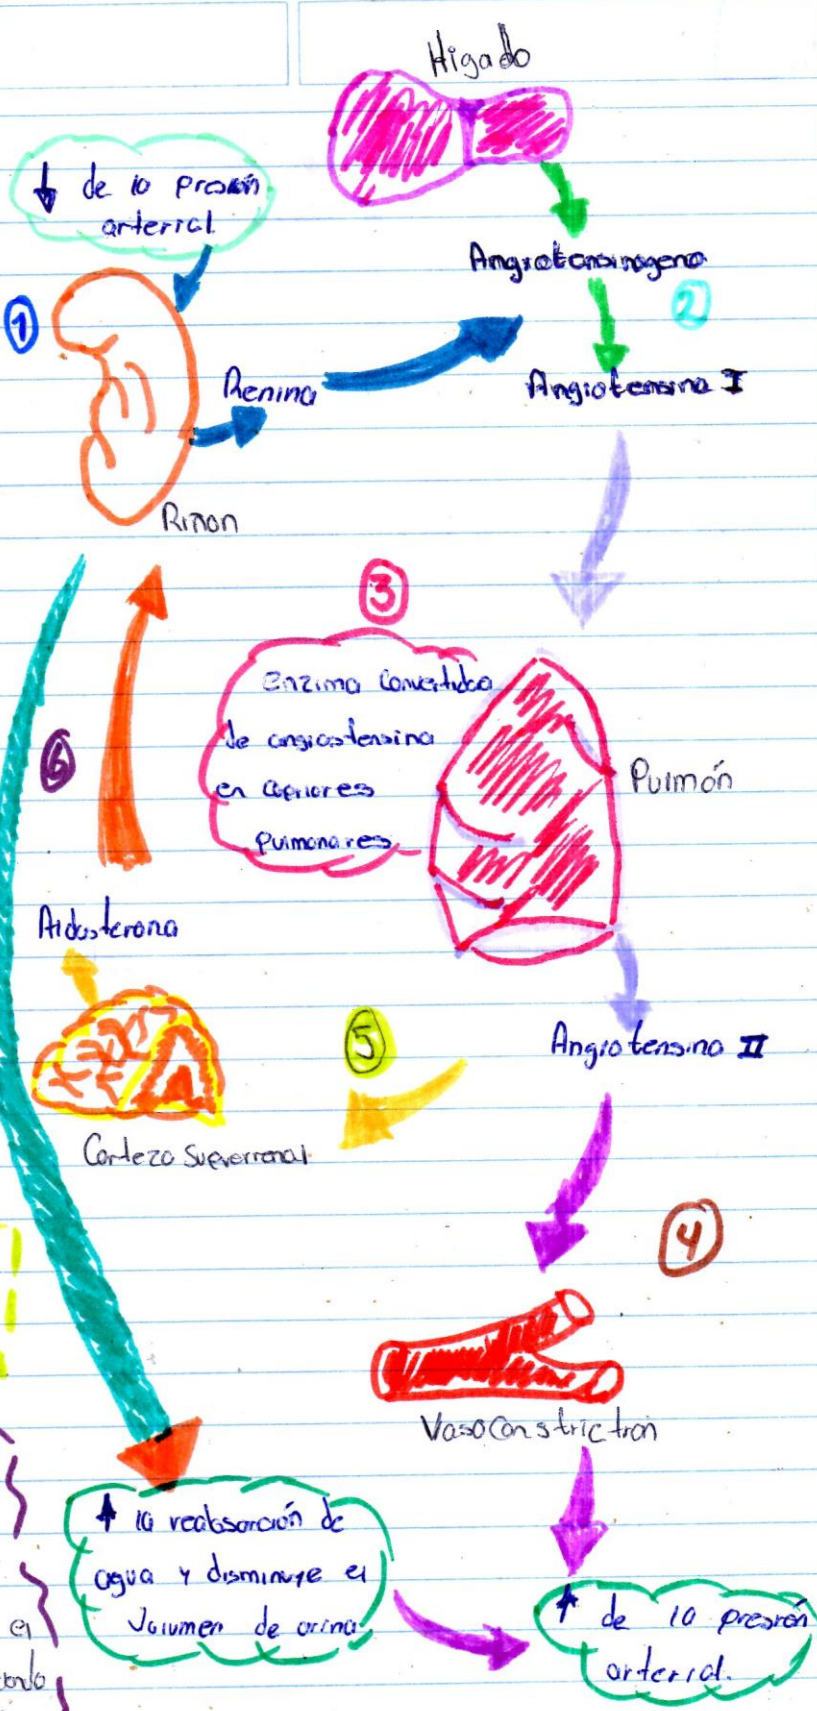 Higado
↓ de la presión
arterial
Angiotensinageno
1
2
Renina
Angiotensina I
Riñon
3
Enzima convertidoa
de angiostensina
en capilares
pulmonares
Pulmón
6
Aldosterona
5
Angiotensina II
Corteza Suprarrenal
4
Vasoconstriction
↑ la reabsorción de
agua y disminuye el
Volumen de orina.
↑ de la presión
arterial.
el